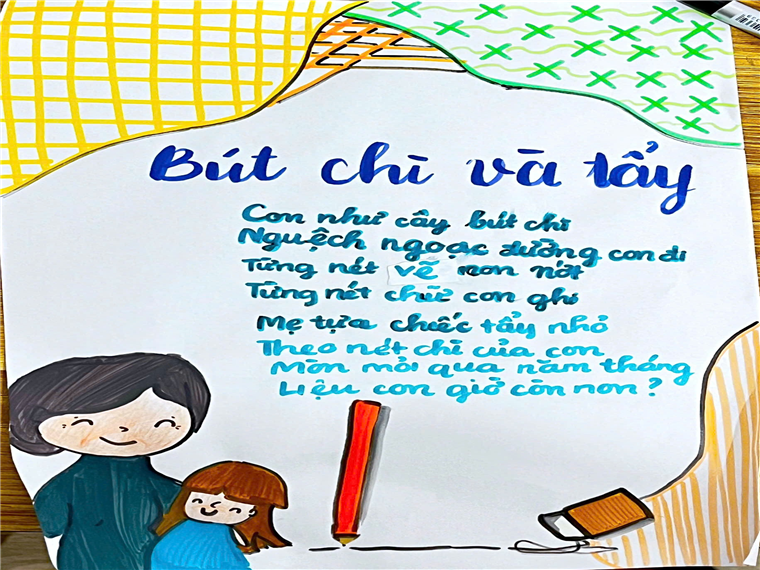 Bút chì và tẩy
Con như cây bút chì
Nguệch ngoạc đường con đi
Từng nét vẽ non nớt
Từng nét chữ con ghi
Mẹ tựa chiếc tẩy nhỏ
Theo nét chì của con
Mòn mỏi qua năm tháng
Liệu con giờ còn non?